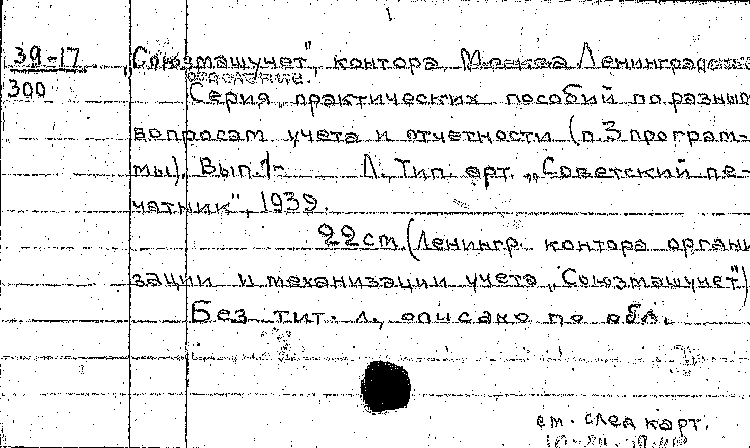 39-17
300
„Союзмашучет", контора Москва Ленинградское
отделение.
Серия практических пособий по разным
вопросам учета и отчетности (п. 3 програм-
мы). Вып. 1- Л., Тип. арт. „Советский пе-
чатник", 1939.
22 см. (Ленингр. контора органи
зации и механизации учета „Союзмашучет")
Без тит. л., описано по обл.
см. след карт.